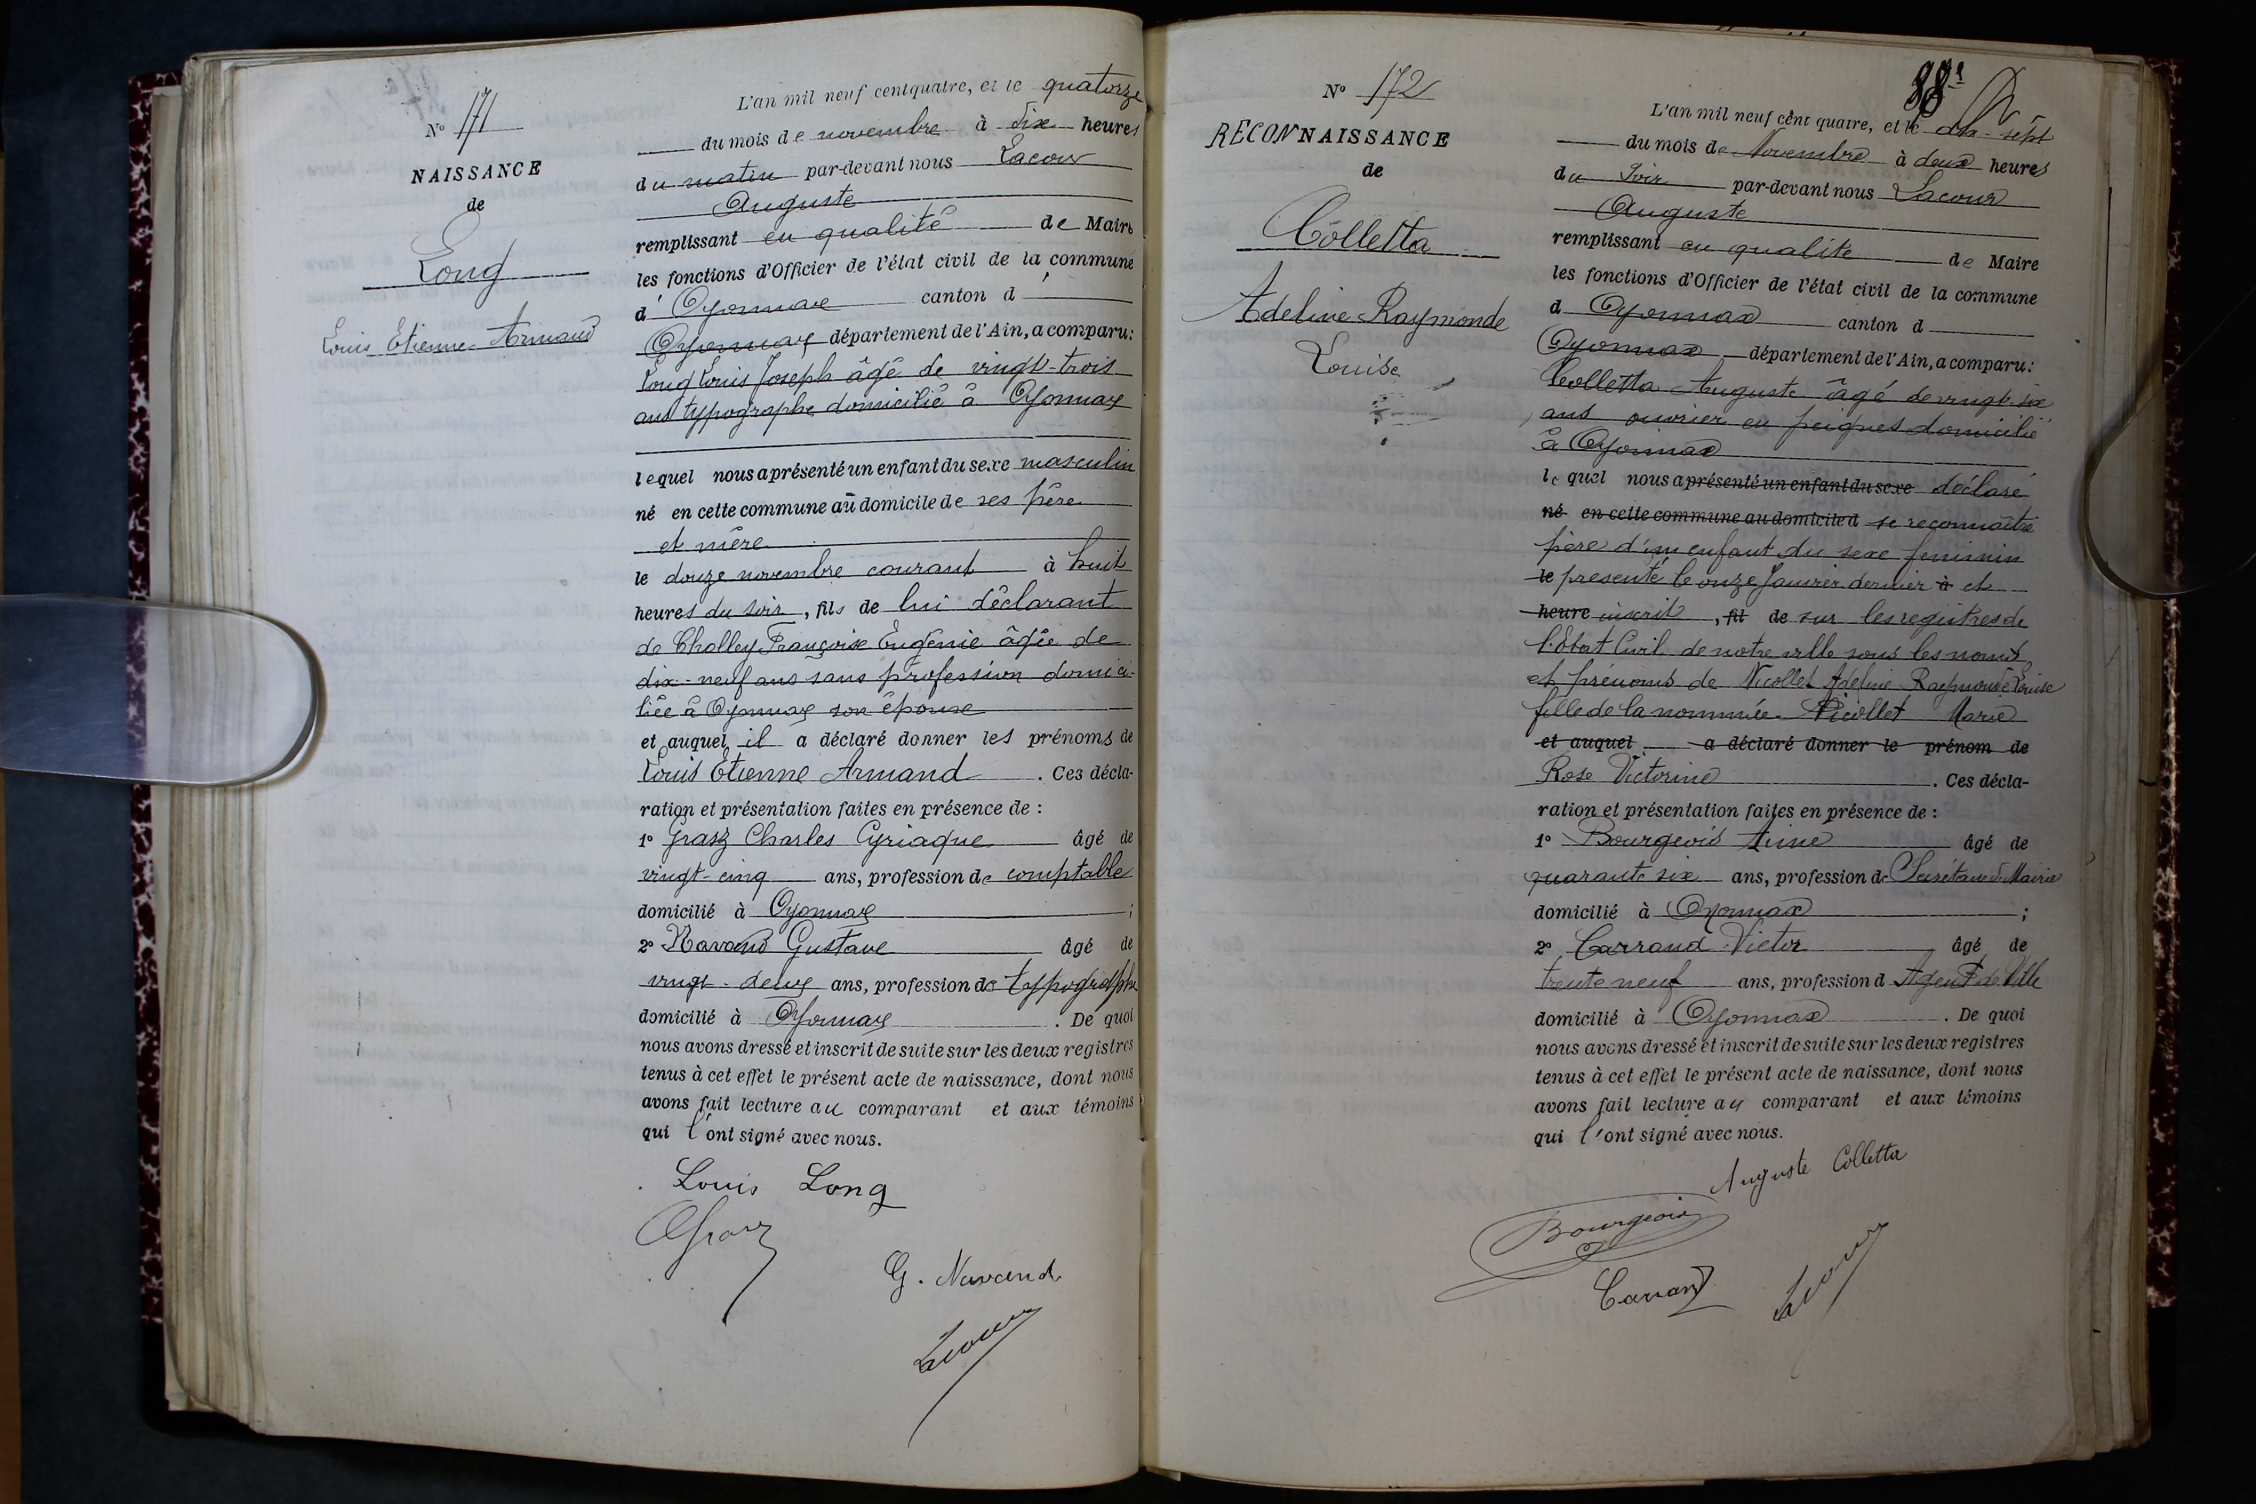 N° 171
NAISSANCE
de
Long
Louis Etienne Armand
L'an mil neuf cent quatre, et le quatorze
du mois de novembre à dix heures
du matin par-devant nous Lacour
Auguste
remplissant en qualité de Maire
les fonctions d'Officier de l'état civil de la commune
d' Oyonnax canton d'
Oyonnax département de l'Ain, a comparu:
Long Louis Joseph âgé de vingt-trois
ans typographe domicilié à Oyonnax
lequel nous a présenté un enfant du sexe masculin
né en cette commune au domicile de ses père
et mère
le douze novembre courant à huit
heures du soir, fils de lui déclarant
de Cholley Françoise Eugénie âgée de
dix-neuf ans sans profession domici-
liée à Oyonnax son épouse
et auquel il a déclaré donner les prénoms de
Louis Etienne Armand . Ces décla-
ration et présentation faites en présence de :
1° Grasz Charles Cyriaque âgé de
vingt-cinq ans, profession de comptable
domicilié à Oyonnax ;
2° Navand Gustave âgé de
vingt-deux ans, profession de typographe
domicilié à Oyonnax . De quoi
nous avons dressé et inscrit de suite sur les deux registres
tenus à cet effet le présent acte de naissance, dont nous
avons fait lecture au comparant et aux témoins
qui l'ont signé avec nous.
Louis Long
Grasz
G. Navand
Lacour
88
N° 172
RECONNAISSANCE
de
Colletta
Adeline Raymonde
Louise
L'an mil neuf cent quatre, et le dix-sept
du mois de Novembre à deux heures
du soir par-devant nous Lacour
Auguste
remplissant en qualité de Maire
les fonctions d'Officier de l'état civil de la commune
d Oyonnax canton d
Oyonnax département de l'Ain, a comparu:
Colletta Auguste âgé de vingt-six
ans ouvrier en peignes domicilié
à Oyonnax
lequel nous a présenté un enfant du sexe déclaré
né en cette commune au domicile d se reconnaître
père d'un enfant du sexe feminin
le presenté le onze Janvier dernier à et
heure inscrit , fil de sur les registres de
l'Etat Civil de notre ville sous les noms
et prénoms de Nicollet Adeline Raymonde Louise
fille de la nommée Nicollet Marie
et auquel a déclaré donner le prénom de
Rose Victorine . Ces décla-
ration et présentation faites en présence de :
1° Bourgeois Aimé âgé de
quarante six ans, profession de Secrétaire de Mairie
domicilié à Oyonnax ;
2° Carrand Victor âgé de
trente neuf ans, profession d Agent de Ville
domicilié à Oyonnax . De quoi
nous avons dressé et inscrit de suite sur les deux registres
tenus à cet effet le présent acte de naissance, dont nous
avons fait lecture au comparant et aux témoins
qui l'ont signé avec nous.
Auguste Colletta
Bourgeois
Carrand
Lacour